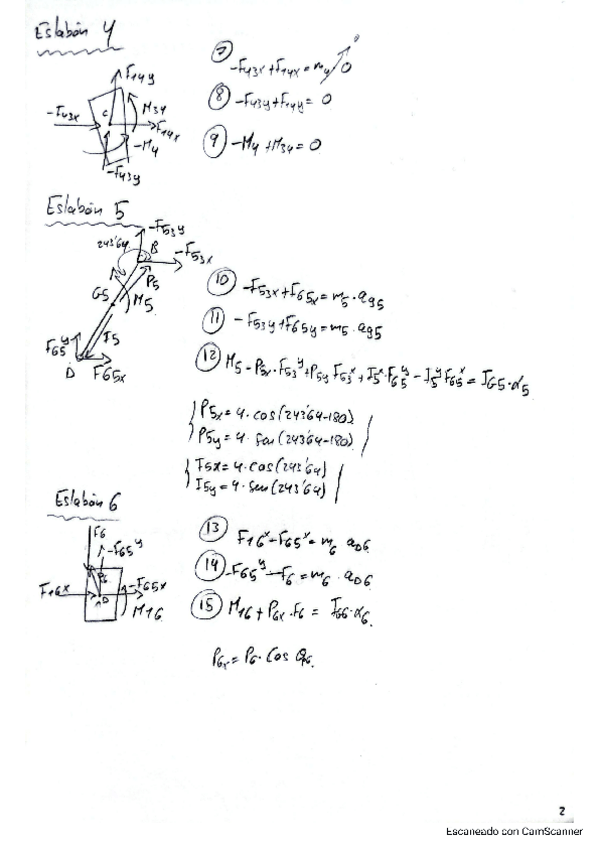 Eslabón 4
F14y
M34
-F43x
C
F14x
-M4
-F43y
⑦ -F43x+F14x=m4 0
⑧ -F43y+F14y= 0
⑨ -M4+M34=0
Eslabón 5
-F53y
243'64
B
-F53x
P5
G5
M5
I5
F65y
D
F65x
⑩ -F53x+F65x=m5·ag5
⑪ -F53y+F65y=m5·ag5
⑫ M5-P5x·F53y+P5y F53x+I5x·F65y-I5y F65x=IG5·α5
P5x=4·cos(243'64-180)
P5y=4·sen(243'64-180)
I5x=4·cos(243'64)
I5y=4·sen(243'64)
Eslabón 6
F6
-F65y
P6
F16x
D
-F65x
M16
⑬ F16x-F65x=m6 aD6
⑭ -F65y-F6=m6·aD6
⑮ M16+P6x·F6=IG6·α6
P6x=P6·cosθ6.
2
Escaneado con CamScanner